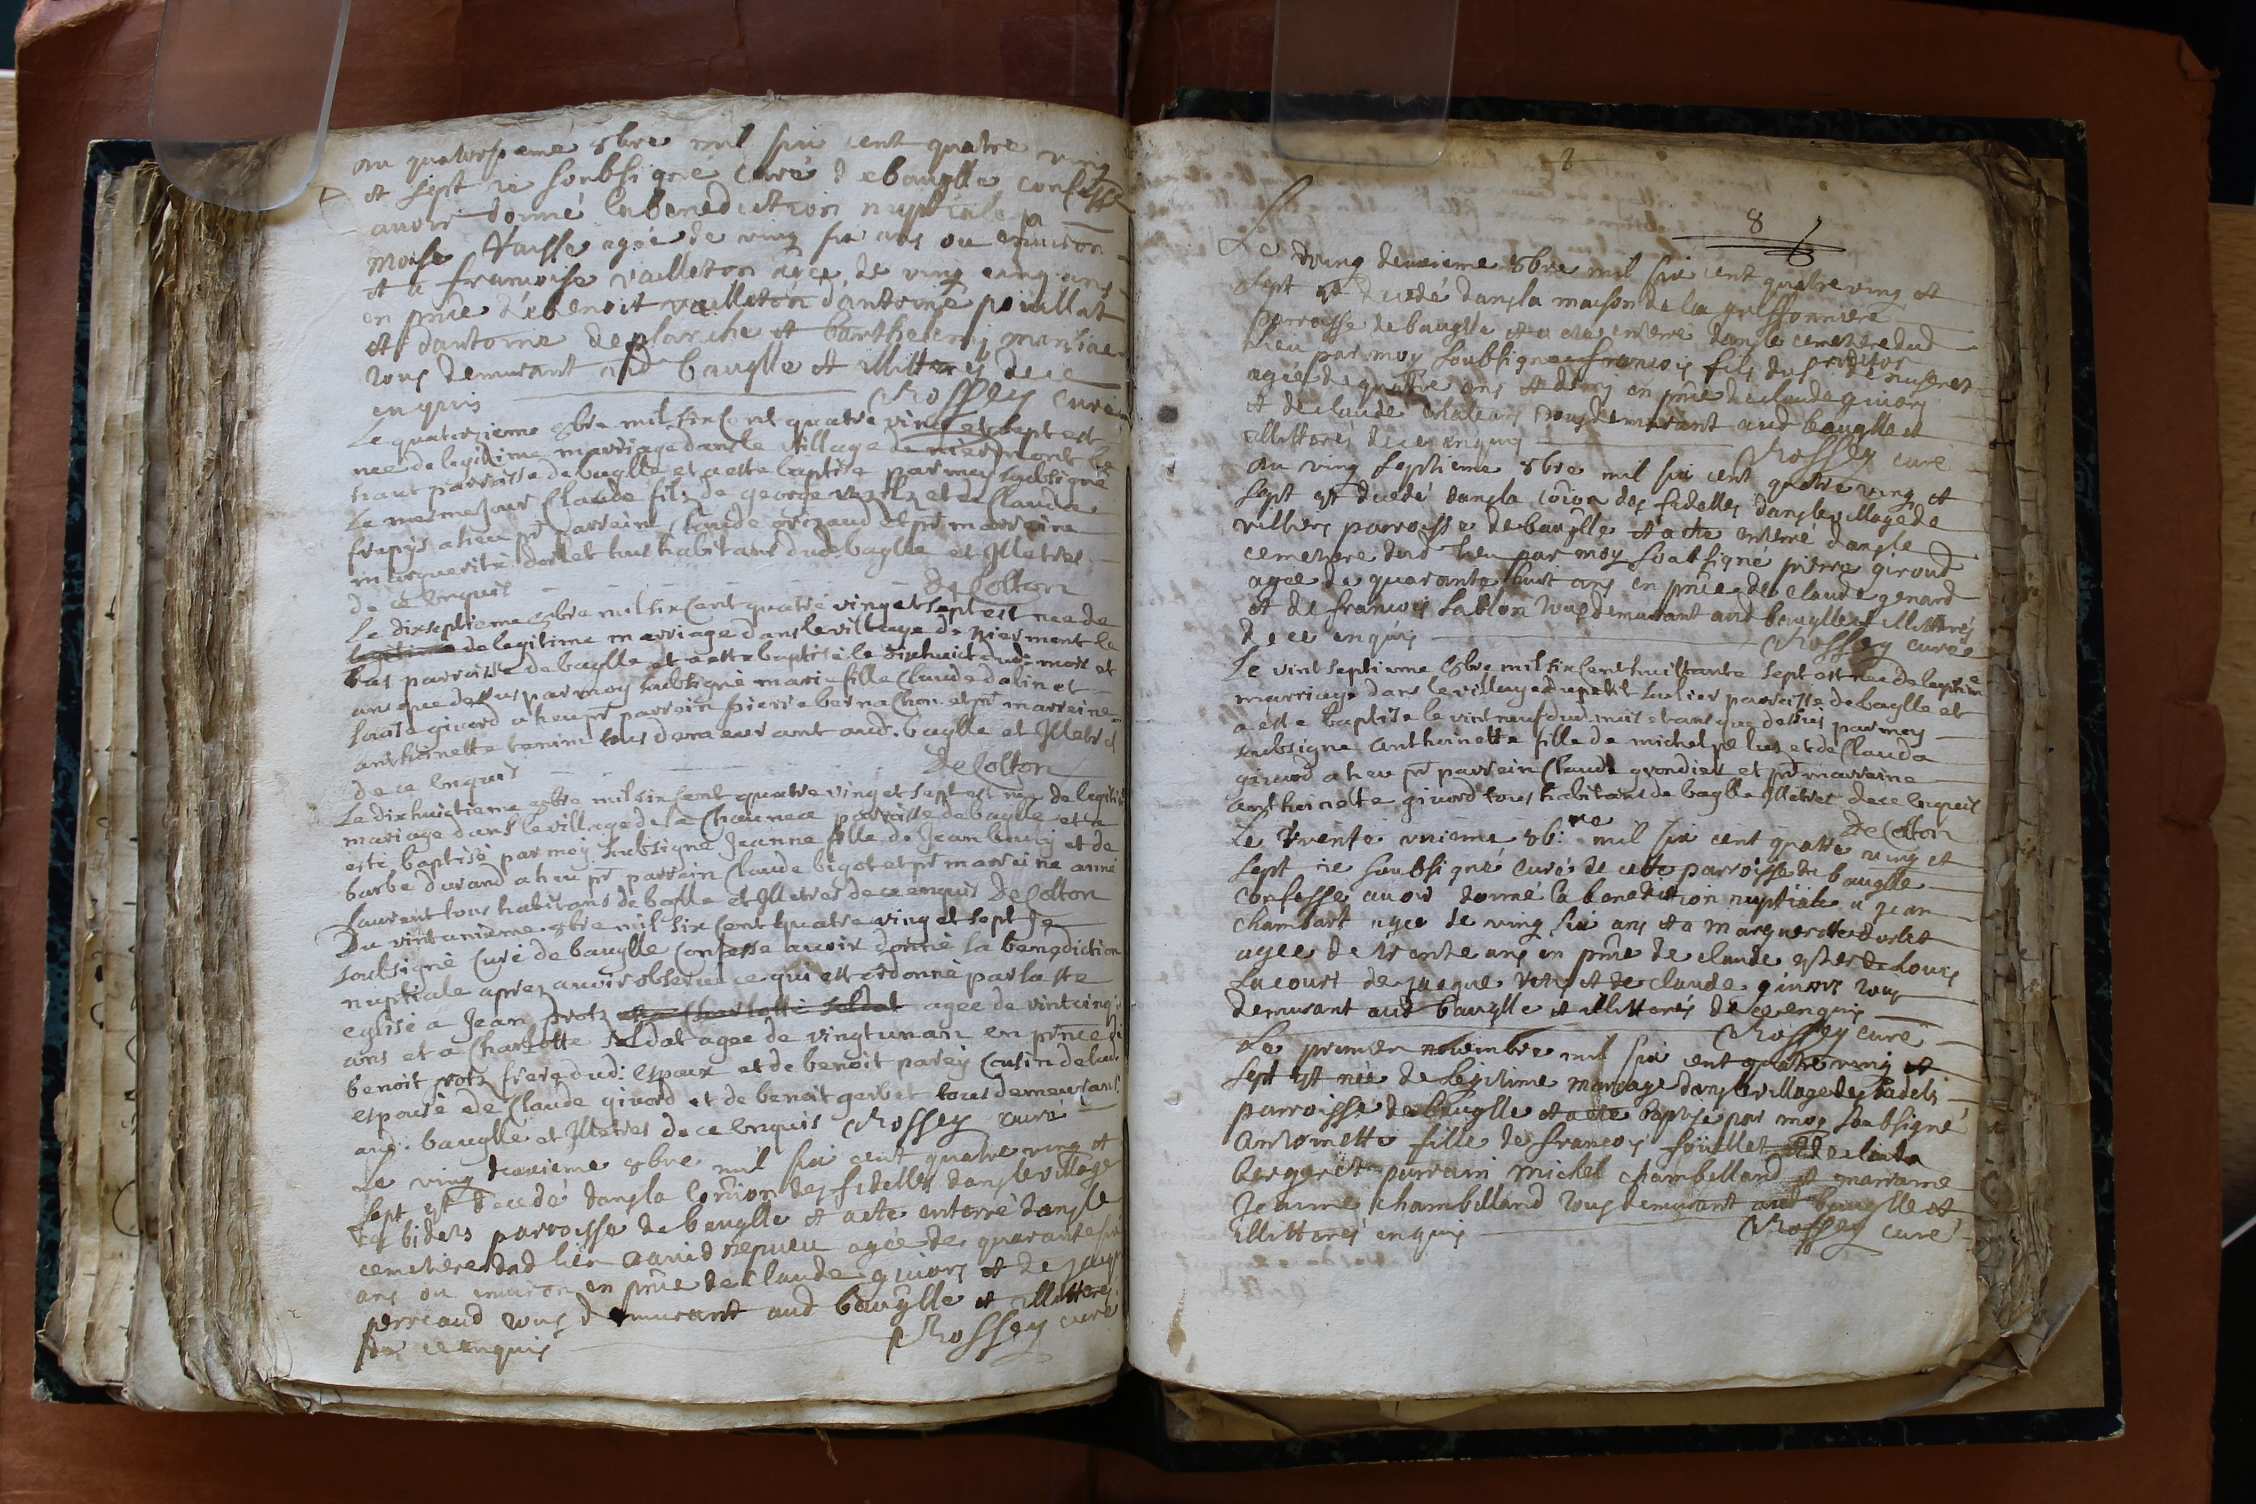 au quatorsieme 8bre mil six cent quatre ving
et sept ie soubsigné curé de bauglle confesse
auoir donné la benediction nuptiale a
moise agée de ving six ans ou enuiron
et a francoise vailleton agée de ving cinq ans
en pnce de benoit vailleton dantoine pouillat
et dantoine deplanche et barthelemy
tous demurant aud bauglle et illitterés de ce
enquis Rossey curé
Le quatorzieme 8bre mil six Cent quatre ving et sept est
nee de legitime marriage dans le village de niermont le
haut parroisse de baglle et a este baptise par moy subsigné
Le mesme jour Claude filz de george et de Claude
a heu pr parrein Claude et pr marreine
marguerite dorlet tous habitans dud baglle et Illetres
de ce Enquis De Colton
Le dixseptieme 8bre mil six Cent quatre ving et sept est nee de
legitime de legitime marriage dans le village de niermont le
bas parroisse de baglle et a este baptisé le dixhuict dud: mois et
an que dessus par moy subsigné marie fille Claude dalin et
Louise giuord a heu pr parrein pierre bernachon et pr marreine
anthoinette tous demeurant aud: baglle et Illetres
de ce Enquis De Colton
Le dixhuitieme 8bre mil six Cent quatre ving et sept est nee de legitime
mariage dans le village de la Chaunea parroisse de baglle et a
este baptisé par moy subsigné Jeanne fille de Jean et de
barbe durand a heu pr parrein Claude bigot et pr marreine anne
Laurent tous habitans de baglle et Illetres de ce enquis De Colton
Du vintunieme 8bre mil six Cent quatre ving et sept Je
soubsigné Curé de bauglle Confesse auoir donné la benediction
nuptiale aprez auoir obserué ce qui est ordonné par la ste
eglise a Jean protz et a Charlotte soldat agee de vintcinq
ans et a Charlotte soldat agee de vingtunan en pnce de
benoit protz frere dud: espoux et de benoit parey Cousin de lad
espouse de Claude giuord et de benoit gerbet tous demeurans
aud. bauglle et Illetres de ce Enquis Rossey curé
Le ving deuxieme 8bre mil six cent quatre ving et
sept est decedé dans la comion des fidelles dans le village
des biders parroisse de bauglle et a ete enterré dans le
cemetiere dud lieu dauid nepueu agée de quarante six
ans ou enuiron en pnce de Claude giuors et de
perreaud tous demurant aud bauglle et illitterés
de ce enquis Rossey curé
8
8
Le ving deuxieme 8bre mil six cent quatre ving et
sept est decedé dans la maison de la
parroisse de bauglle et a ete enterré dans le cemetiere dud
lieu par moy soubsigné francois fils du sr
agée de quattre ans et demy en pnce de claude giuors
et de claude tous demurant aud baugllee
illitterés de ce enquis Rossey curé
au ving septieme 8bre mil six cent quatre ving et
sept est decedé dans la comion des fidelles dans le village de
villiers parroisse de bauglle et a ete enterré dans le
cemetiere dud lieu par moy soubsigné pierre giroud
agée de quarante huit ans en pnce de Claude genard
et de francois Sablon tous demurant aud baugllee illitterés
de ce enquis Rossey curé
Le vint septieme 8bre mil six Cent huictante sept est nee de legitime
marriage dans le village du petit parroisse de baglle et
a este baptise le vint neuf dud mois et an que dessus par moy
subsigné anthoinette fille de michel et de Clauda
giuord a heu pr parrein Claude grondier et pr marreine
anthoinette giuord tous habitans de baglle Illetres de ce Enquis
De Colton
Le trente unieme 8b:re mil six cent quatre ving et
sept ie soubsigné curé de cete parroisse de bauglle
confesse auoir donné la benediction nuptiale a jean
chambart agee de ving six ans et a marguerite dorlet
agee de trente ans en pnce de claude de Louis
Lacourt de jacque et de claude giuors tous
demurant aud bauglle et illitterés de ce enquis
Rossey curé
Le premier nouembre mil six cent quatre ving et
sept est née de legitime mariage dans le village des
parroisse de bauglle et a ete baptisé par moy soubsigné
Antoinette fille de francois et de clauda
bergeret parrain michel chambelland et marraine
Jeanne chambelland tous demurant aud baugllé et
illitterés enquis Rossey curé